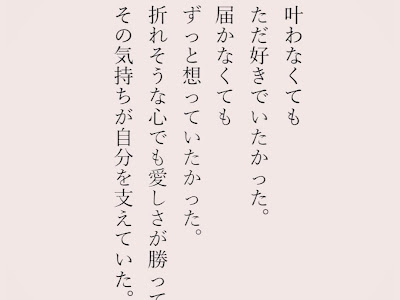 叶わなくても
ただ好きでいたかった。
届かなくても
ずっと想っていたかった。
折れそうな心でも愛しさが勝って
その気持ちが自分を支えていた。